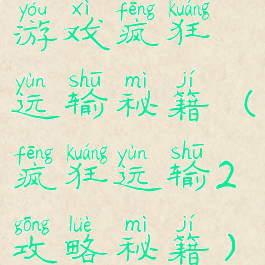 yóu xì fēng kuáng
游戏疯狂
yùn shū mì jí
运输秘籍（
fēng kuáng yùn shū
疯狂运输2
gōng lüè mì jí
攻略秘籍）